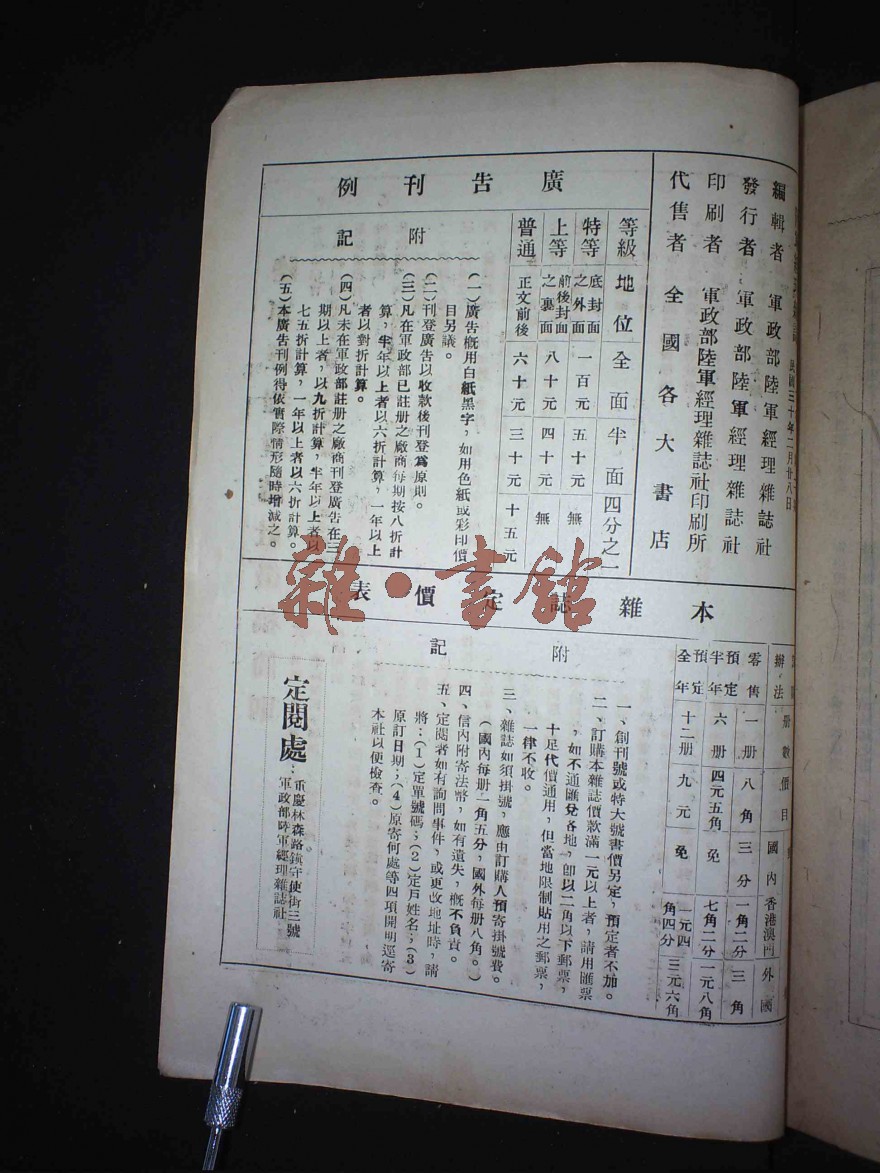 民國三十年二月廿八日
編輯者 軍政部陸軍經理雜誌社
發行者 軍政部陸軍經理雜誌社
印刷者 軍政部陸軍經理雜誌社印刷所
代售者 全國各大書店
廣告刊例
等級 地位 全面 半面 四分之一
特等 底封面之外面 一百元 五十元 無
上等 前後封面之裏面 八十元 四十元 無
普通 正文前後 六十元 三十元 十五元
附記
(一)廣告概用白紙黑字,如用色紙或彩印價
目另議。
(二)刊登廣告以收款後刊登為原則。
(三)凡在軍政部已註册之廠商每期按八折計
算,半年以上者以六折計算,一年以上
者以對折計算。
(四)凡未在軍政部註册之廠商刊登廣告在三
期以上者,以九折計算,半年以上者以
七五折計算,一年以上者以六折計算。
(五)本廣告刊例得依實際情形隨時增減之。
本雜誌定價表
辦法 册數 價目 國內 香港澳門 外國
零售 一册 八角 三分 一角二分 三角
預定半年 六册 四元五角 免 七角二分 一元八角
預定全年 十二册 九元 免 一元四角四分 三元六角
附記
一、創刊號或特大號書價另定,預定者不加。
二、訂購本雜誌價款滿一元以上者,請用匯票
,如不通匯兌各地,卽以二角以下郵票,
十足代價通用,但當地限制貼用之郵票,
一律不收。
三、雜誌如須掛號,應由訂購人預寄掛號費。
(國內每册一角五分,國外每册八角。)
四、信內附寄法幣,如有遺失,概不負責。
五、定閱者如有詢問事件,或更改地址時,請
將:(1)定單號碼;(2)定戶姓名;(3)
原訂日期;(4)原寄何處等四項開明逕寄
本社以便檢查。
定閱處:重慶林森路鎮守使街三號。
軍政部陸軍經理雜誌社
雜·書館